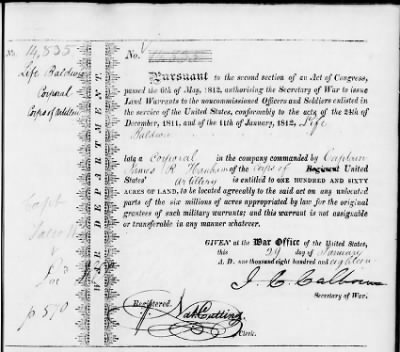 No. 14,835
Life Baldwin
Corporal
Corps of Artillery
Capt
p 570
WAR DEPARTMENT.
No. 14,835
Pursuant to the second section of an Act of Congress,
passed the 6th of May, 1812, authorising the Secretary of War to issue
Land Warrants to the noncommissioned Officers and Soldiers enlisted in
the service of the United States, conformably to the acts of the 24th of
December, 1811, and of the 11th of January, 1812, Life
Baldwin
late a Corporal in the company commanded by Captain
James R. Hanham of the Corps of Regiment United
States' Artillery is entitled to ONE HUNDRED AND SIXTY
ACRES OF LAND, to be located agreeably to the said act on any unlocated
parts of the six millions of acres appropriated by law for the original
grantees of such military warrants; and this warrant is not assignable
or transferable in any manner whatever.
GIVEN at the War Office of the United States,
this 29 day of January
A. D. one thousand eight hundred and eighteen
J. C. Calhoun
Secretary of War.
Registered.
Nat Cutting
Clerk.